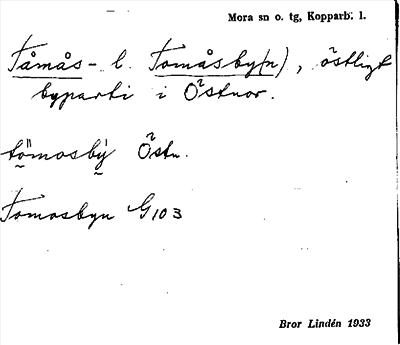 Mora sn o. tg, Kopparb. l.
Tåmås- l. Tomåsby(n), östligt
byparti i Östnor.
tömosbý Östn.
Tomosbyn G103
Bror Lindén 1933